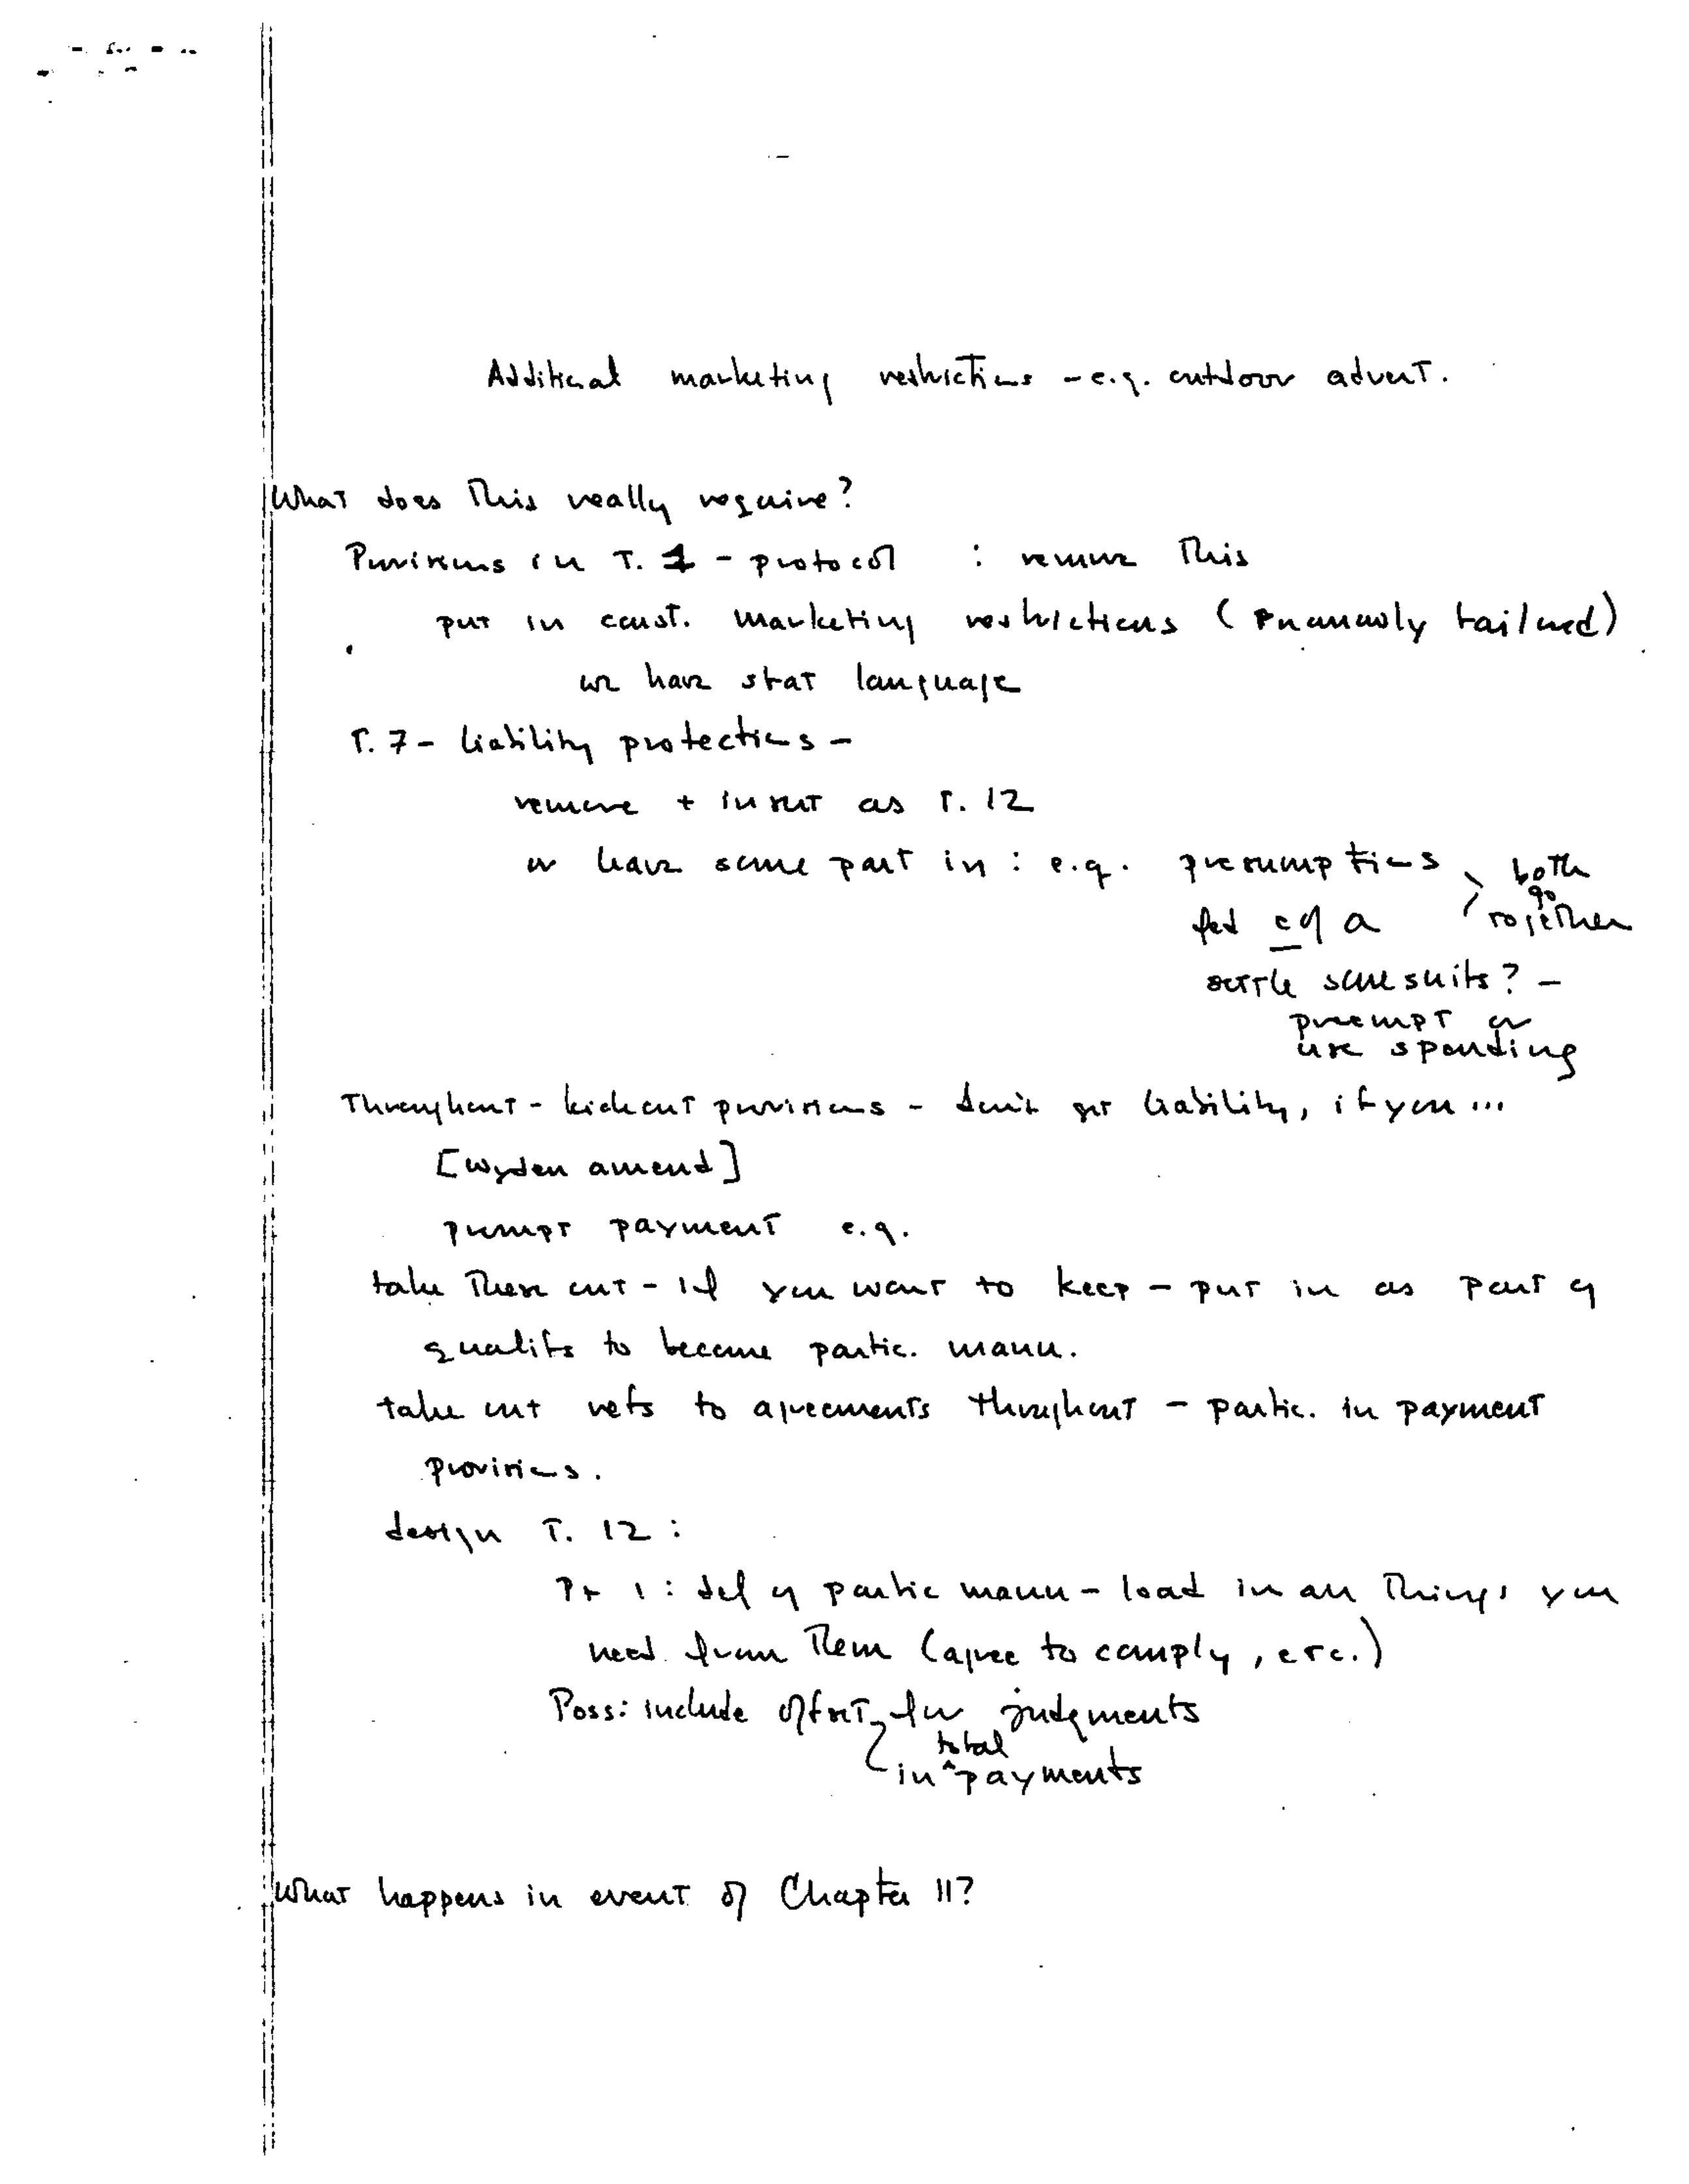 Additional marketing restrictions - e.g. outdoor advert.
What does this really require?
Provisions in T. 1 - protocol : remove this
put in const. marketing restrictions (narrowly tailored)
we have stat language
T. 7 - liability protections -
remove + insert as T. 12
or leave some part in : e.g. presumptions > both go together
fed c of a
settle some suits? -
preempt or
use spending
Throughout - kickout provisions - don't get liability, if you ...
[Wyden amend]
prompt payment e.g.
take these out - if you want to keep - put in as part of
qualifs to become partic. manu.
take out refs to agreements throughout - partic. in payment
provisions.
design T. 12 :
Pt 1 : def of partic manu - load in all things you
need from them (agree to comply, etc.)
Poss: include offset for judgments
in total payments
What happens in event of Chapter 11?